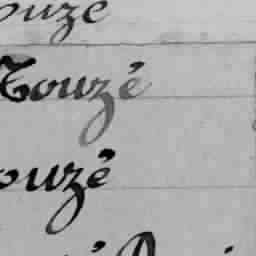 ouzé
Touzé
ouzé